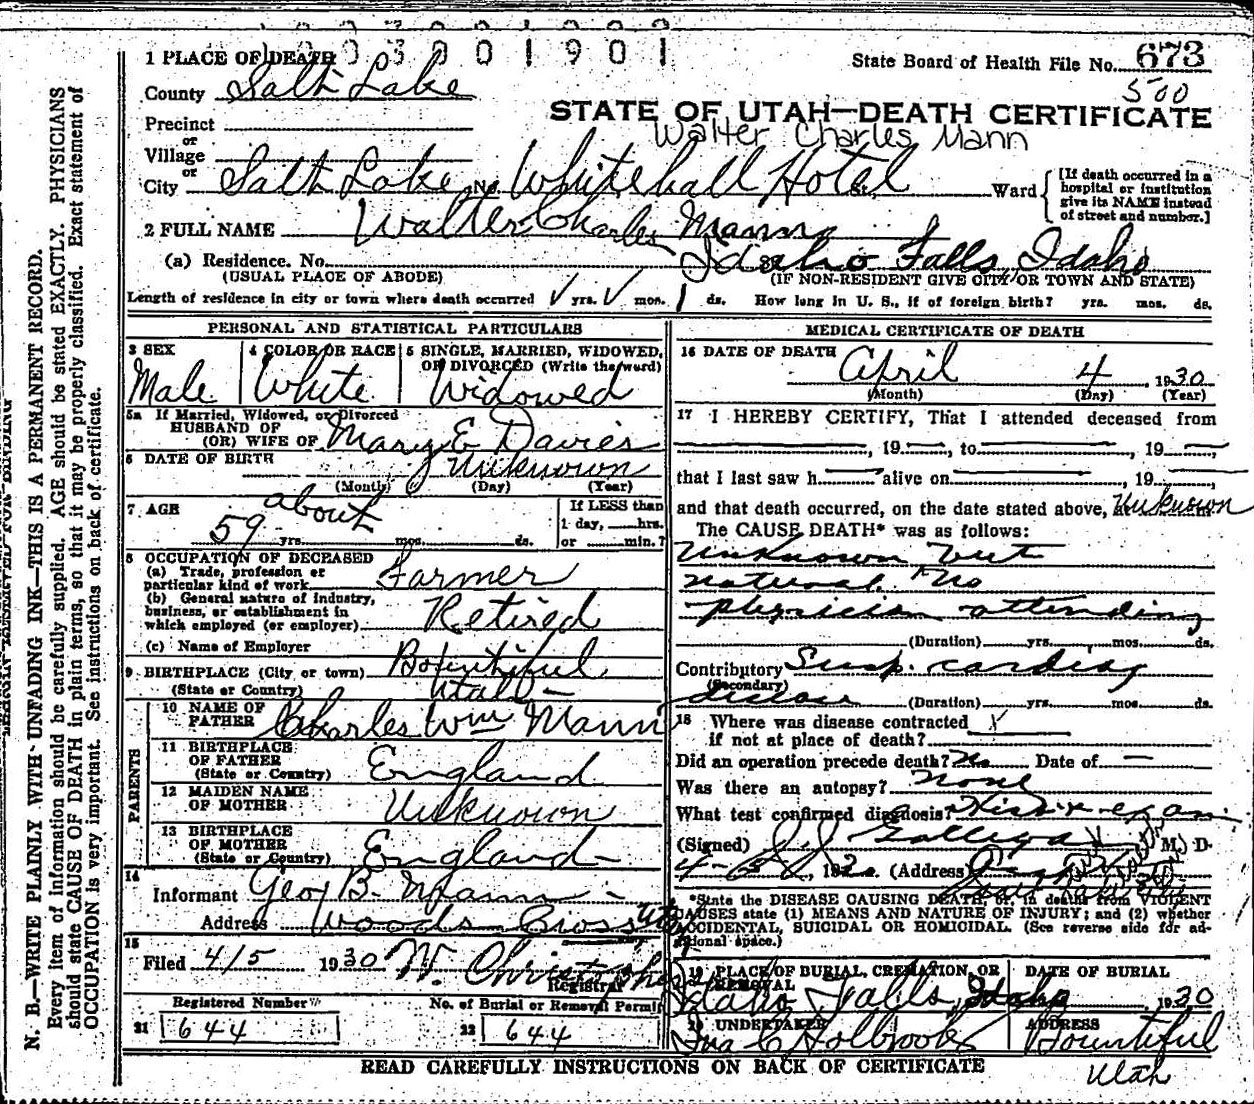 1 0 0 3 0 0 1 9 0 1
1 PLACE OF DEATH
State Board of Health File No. 673
500
County Salt Lake
STATE OF UTAH—DEATH CERTIFICATE
Walter Charles Mann
Precinct
or
Village
or
City Salt Lake No. Whitehall Hotel St., Ward
[If death occurred in a
hospital or institution
give its NAME instead
of street and number.]
2 FULL NAME Walter Charles Mann
(a) Residence. No. Idaho Falls, Idaho
(USUAL PLACE OF ABODE) (IF NON-RESIDENT GIVE CITY OR TOWN AND STATE)
Length of residence in city or town where death occurred yrs. mos. 1 ds. How long in U. S., if of foreign birth? yrs. mos. ds.
PERSONAL AND STATISTICAL PARTICULARS
3 SEX
Male
4 COLOR OR RACE
White
5 SINGLE, MARRIED, WIDOWED,
OR DIVORCED (Write the word)
Widowed
5a If Married, Widowed, or Divorced
HUSBAND OF
(OR) WIFE OF Mary E Davies
6 DATE OF BIRTH Unknown
(Month) (Day) (Year)
7 AGE about
59 yrs. mos. ds.
If LESS than
1 day, hrs.
or min.?
8 OCCUPATION OF DECEASED
(a) Trade, profession or
particular kind of work Farmer
(b) General nature of industry,
business, or establishment in
which employed (or employer) Retired
(c) Name of Employer
9 BIRTHPLACE (City or town) Bountiful
(State or Country) Utah
PARENTS
10 NAME OF
FATHER Charles Wm Mann
11 BIRTHPLACE
OF FATHER
(State or Country) England
12 MAIDEN NAME
OF MOTHER Unknown
13 BIRTHPLACE
OF MOTHER
(State or Country) England
14
Informant Geo B. Mann
Address Woods Cross Utah
15
Filed 4/5 1930 W. Christopher
Registrar
Registered Number
21 644
No. of Burial or Removal Permit
22 644
MEDICAL CERTIFICATE OF DEATH
16 DATE OF DEATH
April 4, 1930
(Month) (Day) (Year)
17 I HEREBY CERTIFY, That I attended deceased from
, 19 , to , 19
that I last saw h alive on , 19
and that death occurred, on the date stated above, Unknown
The CAUSE DEATH* was as follows:
Unknown but
natural. No
physician attending
(Duration) yrs. mos. ds.
Contributory Susp. cardiac
(Secondary)
disease (Duration) yrs. mos. ds.
18 Where was disease contracted
if not at place of death?
Did an operation precede death? No Date of —
Was there an autopsy? none
What test confirmed diagnosis? Hist + exam
(Signed) M. D.
(Address)
*State the DISEASE CAUSING DEATH, or, in deaths from VIOLENT
CAUSES state (1) MEANS AND NATURE OF INJURY; and (2) whether
ACCIDENTAL, SUICIDAL OR HOMICIDAL. (See reverse side for ad-
ditional space.)
19 PLACE OF BURIAL, CREMATION, OR
REMOVAL
Idaho Falls, Idaho
DATE OF BURIAL
1930
20 UNDERTAKER
Ina C Holbrook
ADDRESS
Bountiful
Utah
READ CAREFULLY INSTRUCTIONS ON BACK OF CERTIFICATE
N. B.—WRITE PLAINLY WITH UNFADING INK—THIS IS A PERMANENT RECORD.
Every item of information should be carefully supplied. AGE should be stated EXACTLY. PHYSICIANS
should state CAUSE OF DEATH in plain terms, so that it may be properly classified. Exact statement of
OCCUPATION is very important. See instructions on back of certificate.